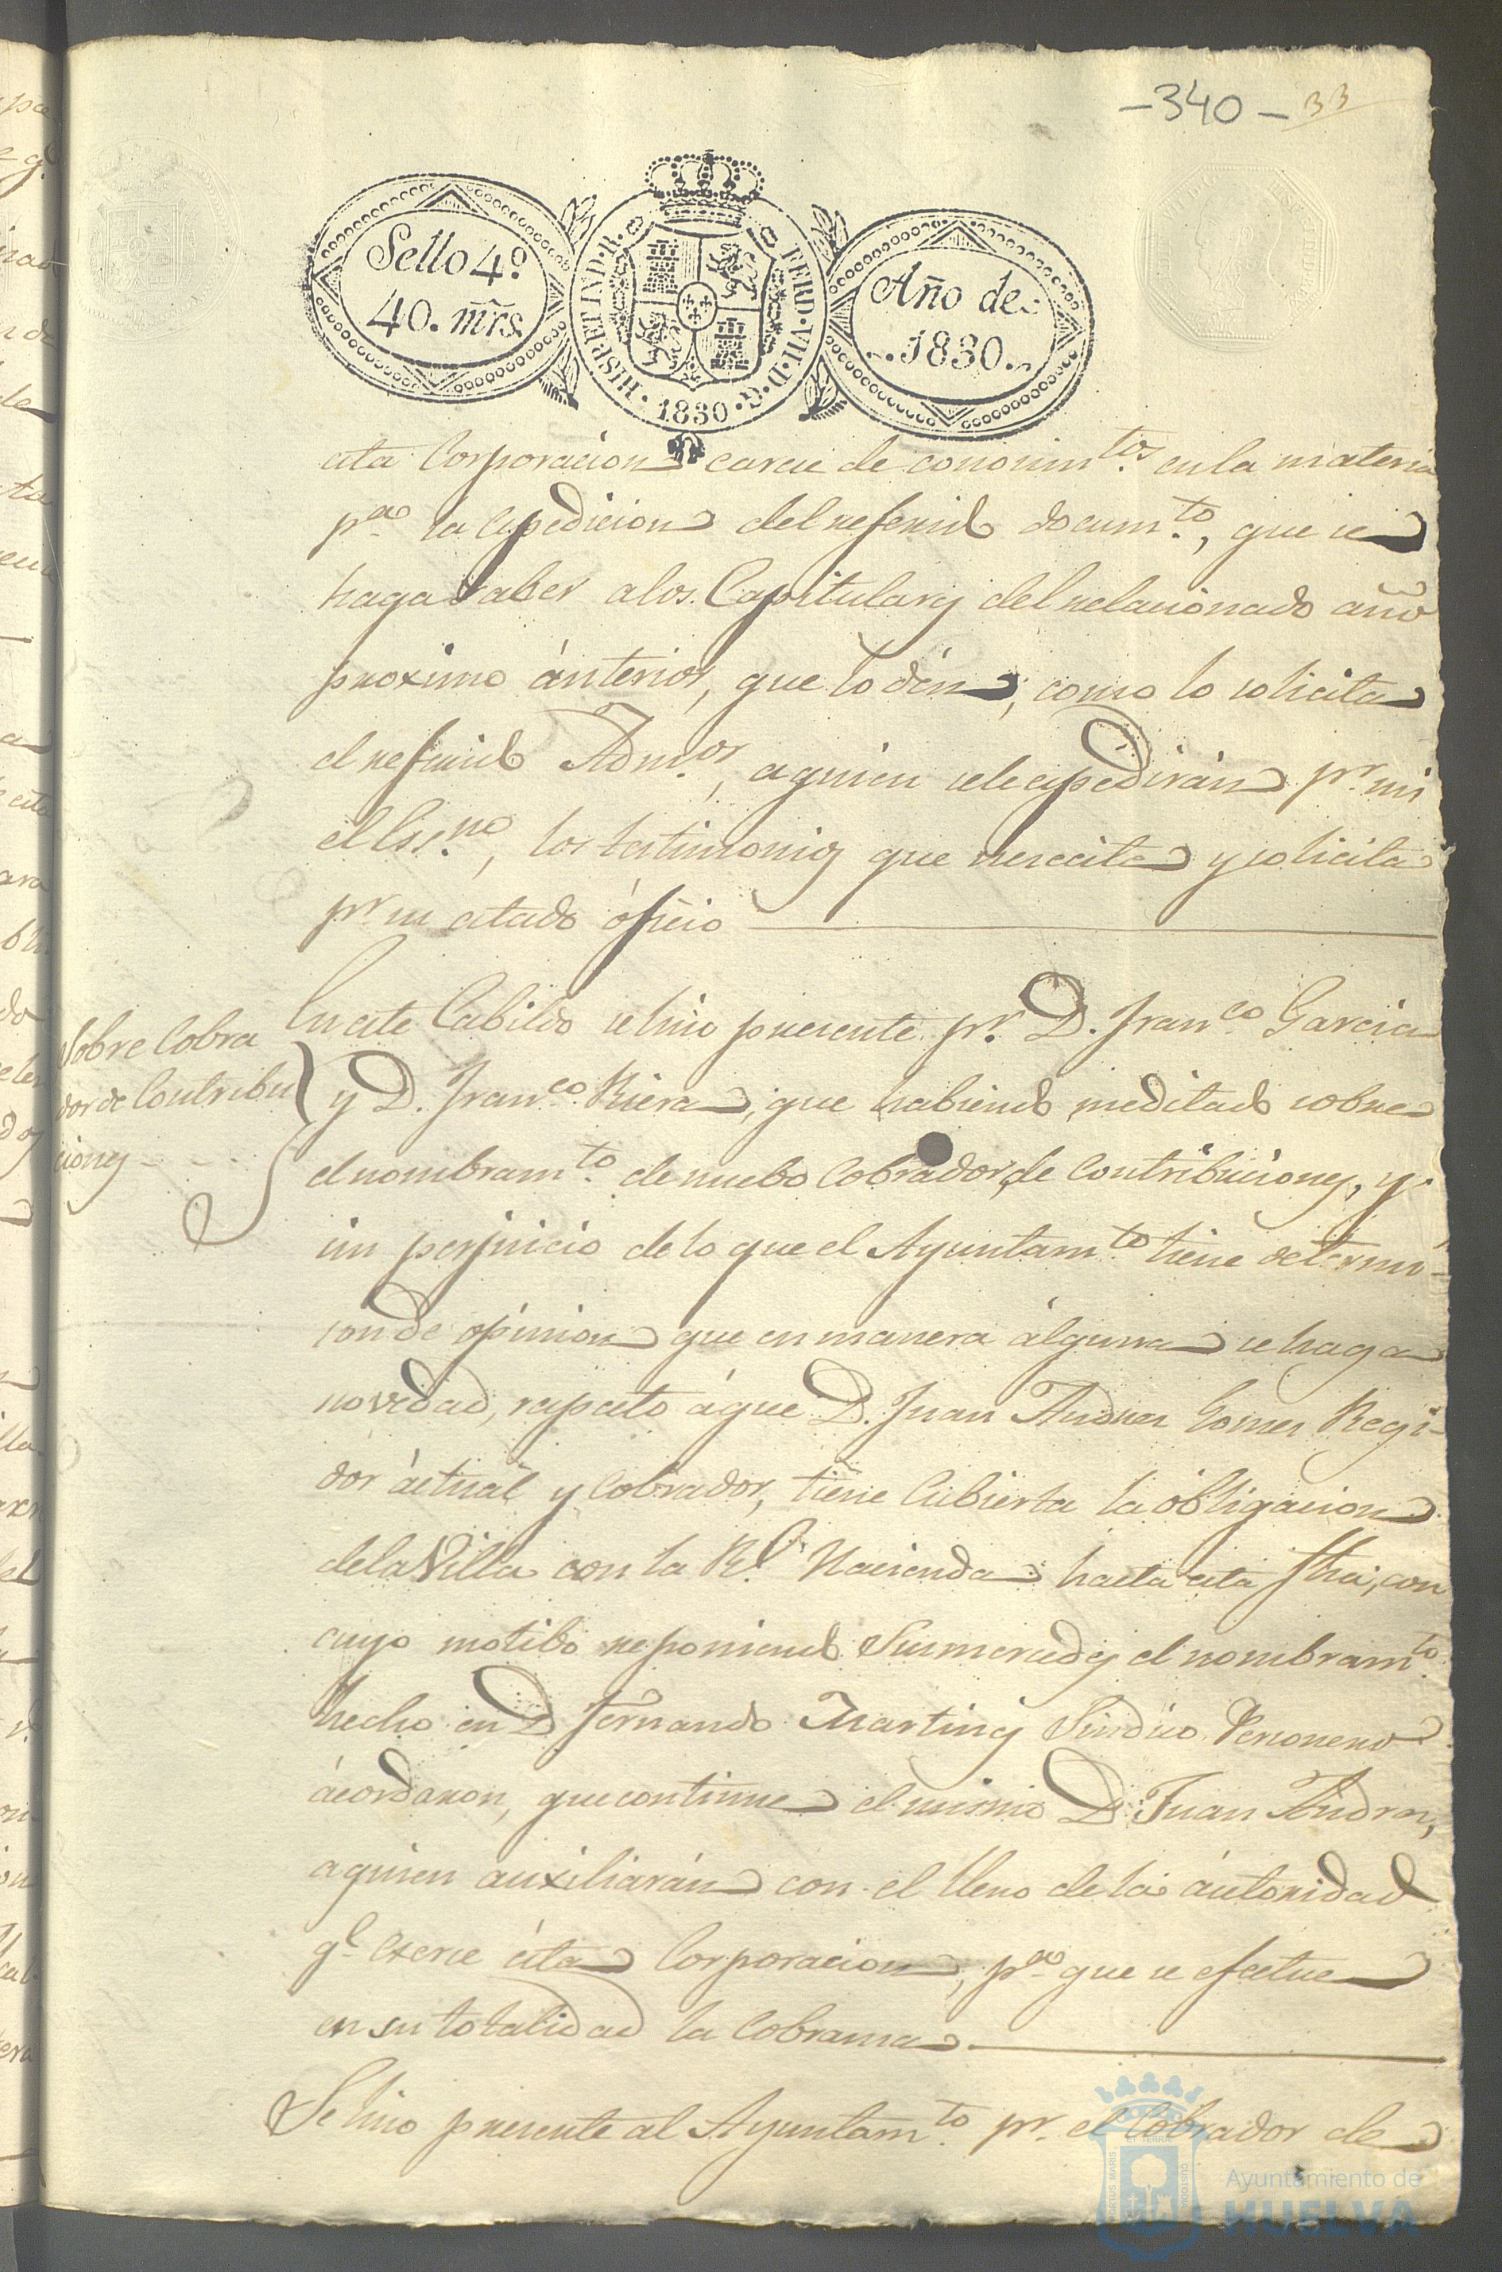 -340- 33
Sello 4º
40. mrs.
HISP. ET IND. R. FERD. VII. D. G.
1830
Año de
1830
esta Corporacion carece de conocimtos. en la materia
pa. la espedicion del referido documto., que se
haga saber a los Capitulares del relacionado año
proximo ánterior, que lo dén, como lo solicita
el referido Admor., a quien se le espedirán pr. mi
el Essno., los testimonios que necesita y solicita
pr. su citado óficio
Sobre Cobra
dor de Contribu
ciones
En este Cabildo se hizo presente pr. D. Franco. Garcia
y D. Franco. Riera, que habiendo meditado sobre
el nombramto. de nuebo Cobrador de Contribuciones, y
sin perjuicio de lo que el Ayuntamto. tiene determi-
son de opinion que en manera álguna se haga
novedad, respecto á que D. Juan Andres Gomez Regi-
dor áctual y Cobrador, tiene Cubierta la obligacion
de la Villa con la Rl. Hacienda hasta esta fha, con
cuyo motibo reponiendo Sus mercedes el nombramto.
hecho en D Fernando Martines Sindico Personero
ácordaron, que continue el mismo D. Juan Andres,
a quien auxiliarán con el lleno de la áutoridad
ql. exerce ésta Corporacion, pa. que se efectue
en su totalidad la Cobranza
Se hizo presente al Ayuntamto. pr. el Cobrador de
Ayuntamiento de
HUELVA